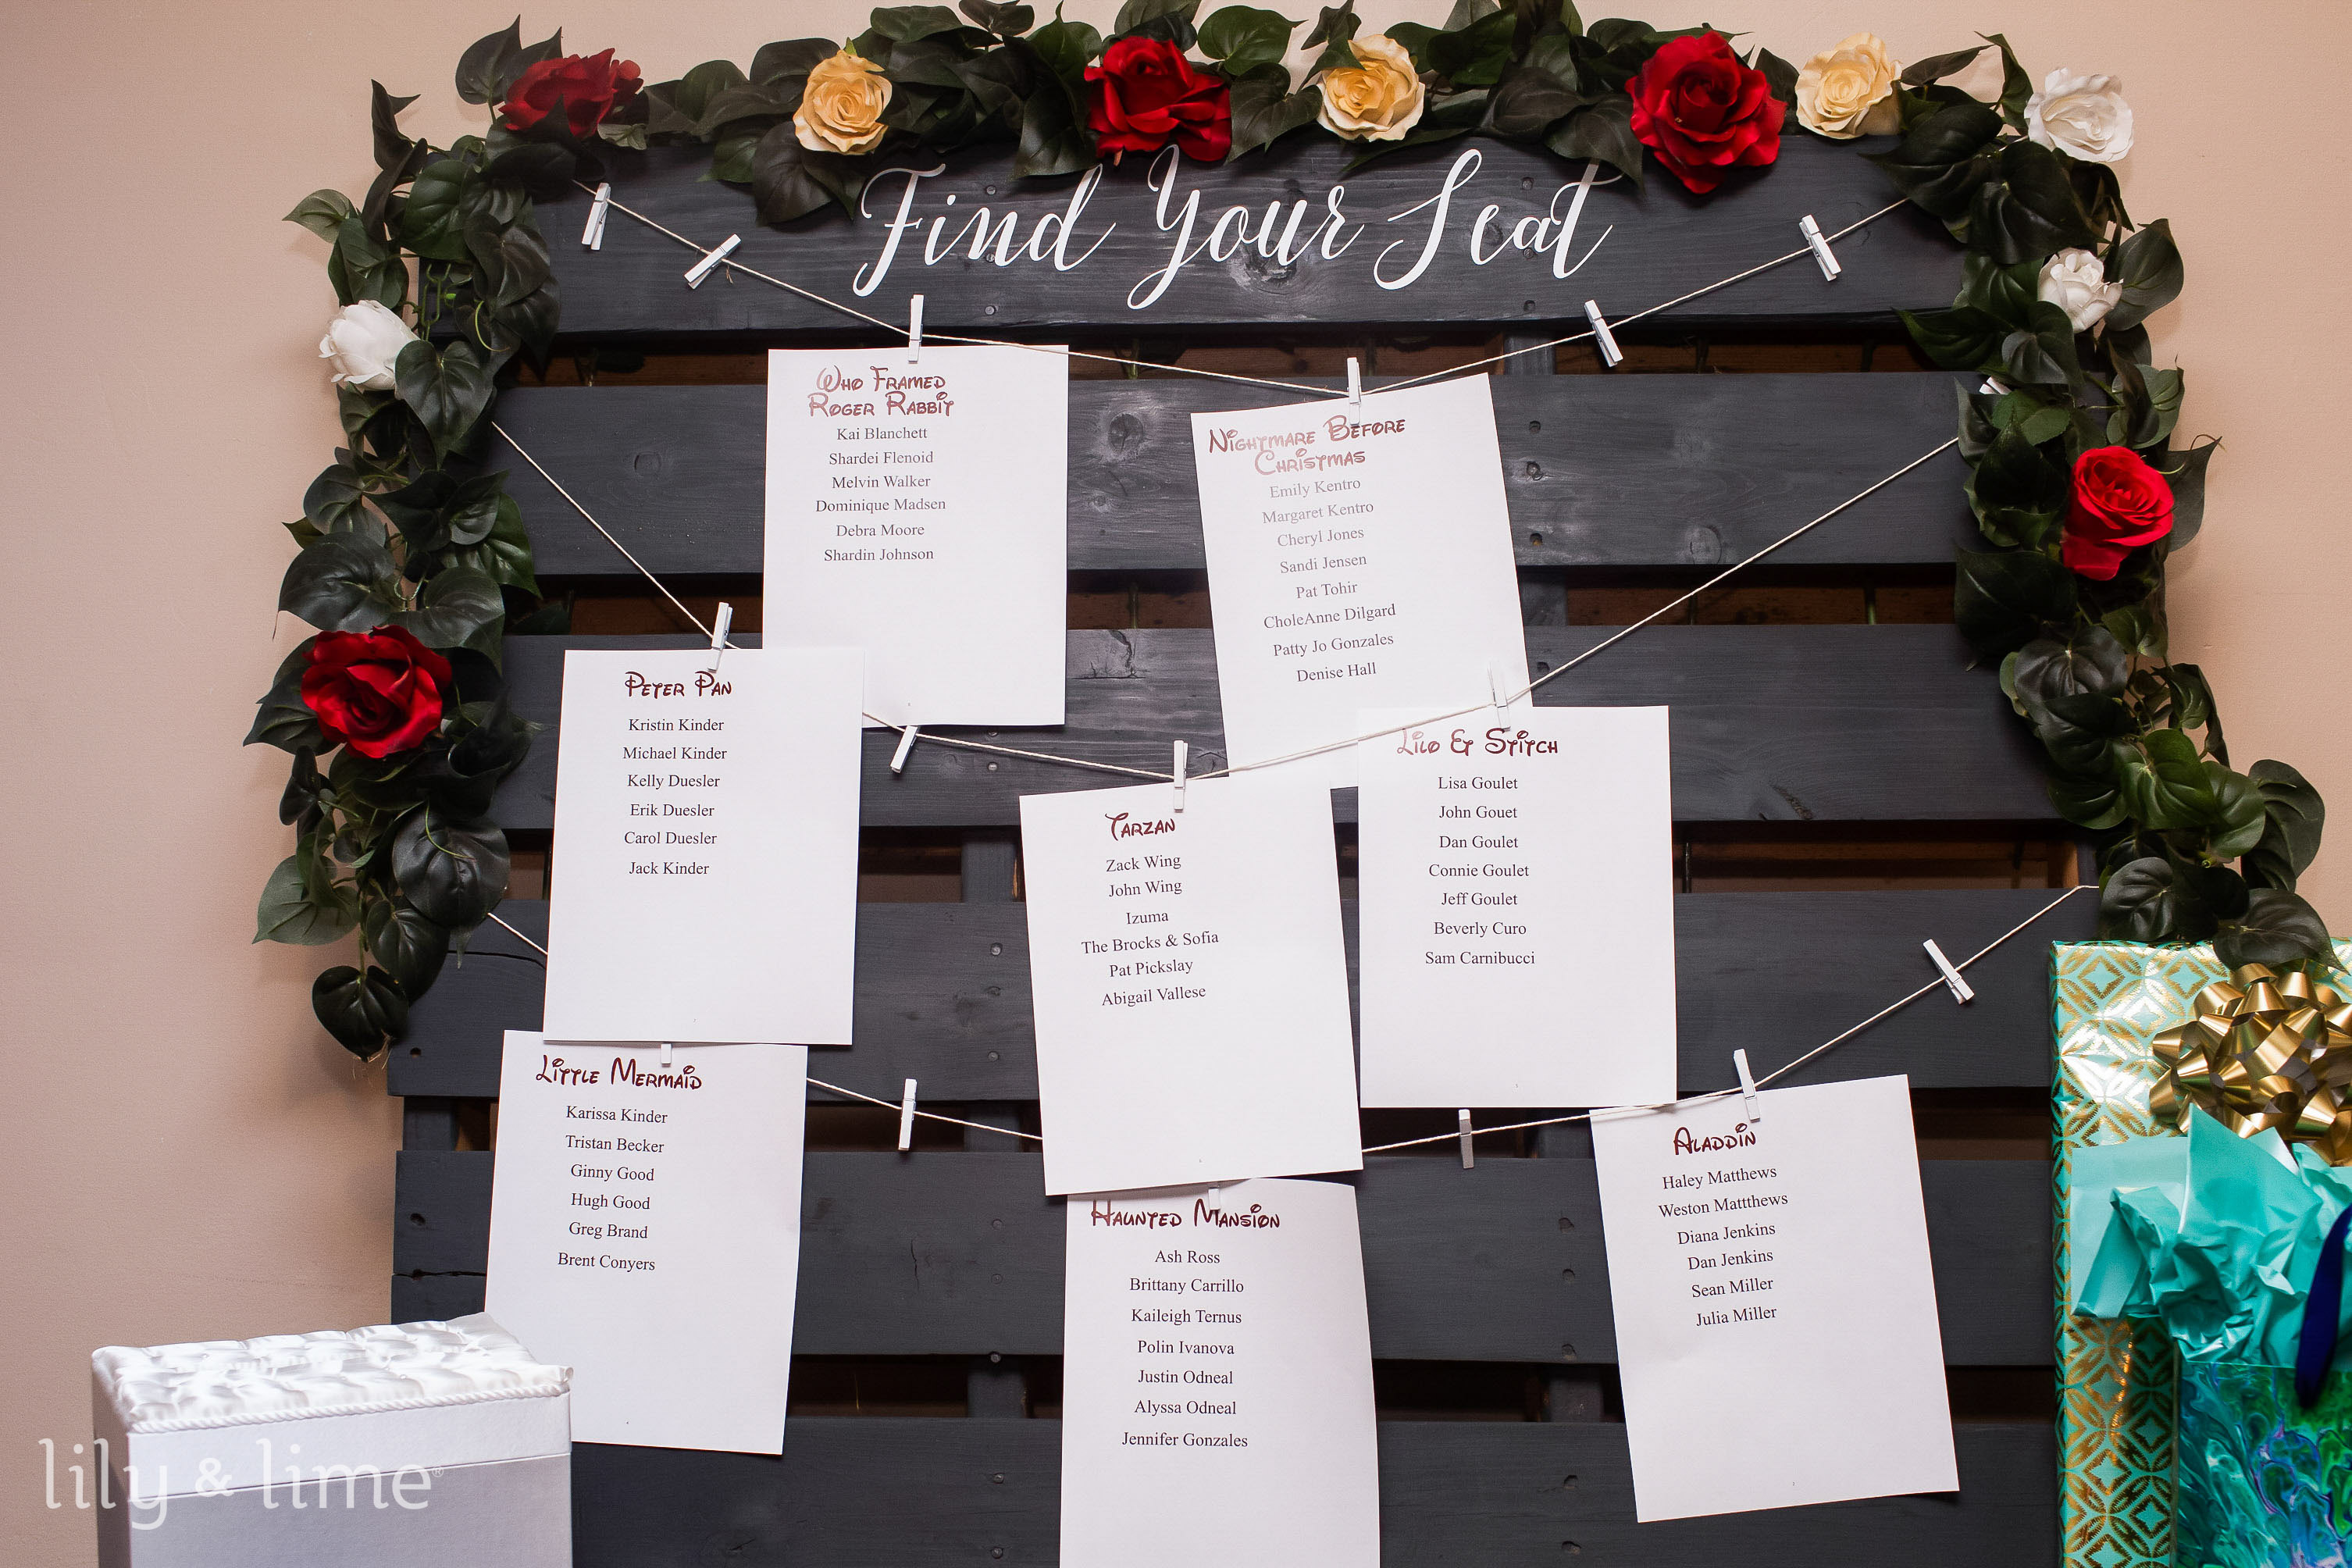 Find Your Seat
Who Framed
Roger Rabbit
Kai Blanchett
Shardei Flenoid
Melvin Walker
Dominique Madsen
Debra Moore
Shardin Johnson
Nightmare Before
Christmas
Emily Kentro
Margaret Kentro
Cheryl Jones
Sandi Jensen
Pat Tohir
CholeAnne Dilgard
Patty Jo Gonzales
Denise Hall
Peter Pan
Kristin Kinder
Michael Kinder
Kelly Duesler
Erik Duesler
Carol Duesler
Jack Kinder
Tarzan
Zack Wing
John Wing
Izuma
The Brocks & Sofia
Pat Pickslay
Abigail Vallese
Lilo & Stitch
Lisa Goulet
John Gouet
Dan Goulet
Connie Goulet
Jeff Goulet
Beverly Curo
Sam Carnibucci
Little Mermaid
Karissa Kinder
Tristan Becker
Ginny Good
Hugh Good
Greg Brand
Brent Conyers
Haunted Mansion
Ash Ross
Brittany Carrillo
Kaileigh Ternus
Polin Ivanova
Justin Odneal
Alyssa Odneal
Jennifer Gonzales
Aladdin
Haley Matthews
Weston Mattthews
Diana Jenkins
Dan Jenkins
Sean Miller
Julia Miller
lily & lime®